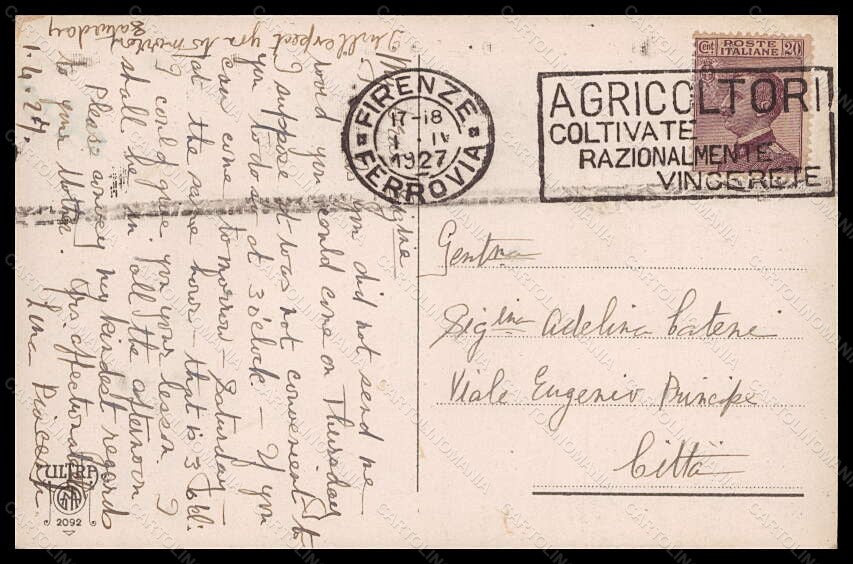 I will expect you to-morrow
Saturday
1.4.27.
you did not send me
word you could come on Thursday
I suppose it was not convenient to
you to do so at 3 o'clock – If you
can come to morrow – Saturday –
at the same hour – that is 3 o'cl:
I could give you your lesson. I
shall be in all the afternoon
Please convey my kindest regards
to your Mother. Yrs affectionately
Lina
ULTRA
2092
FIRENZE
17-18
1 · IV
1927
FERROVIA
Cent
POSTE
ITALIANE
20
AGRICOLTORI
COLTIVATE
RAZIONALMENTE
VINCERETE
Gentma
Siglina Adelina Cateni
Viale Eugenio Principe
Città
CARTOLINOMANIA